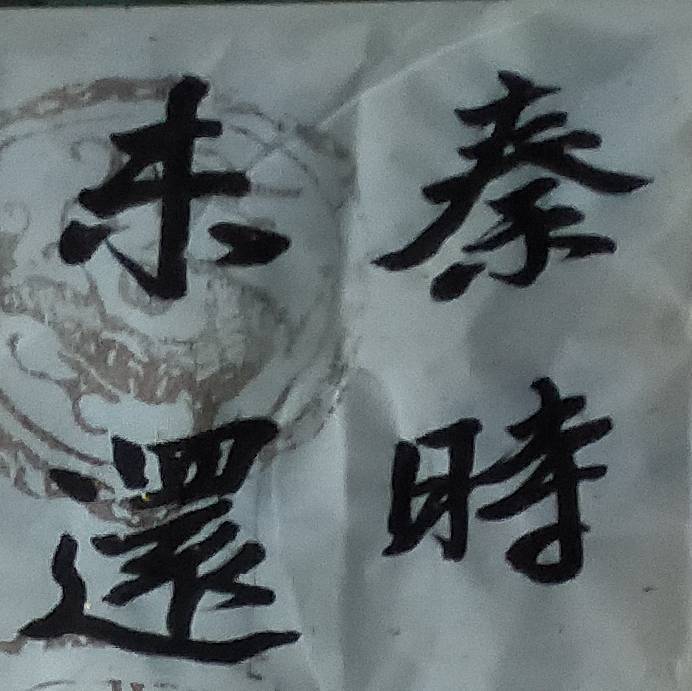 秦時
未還